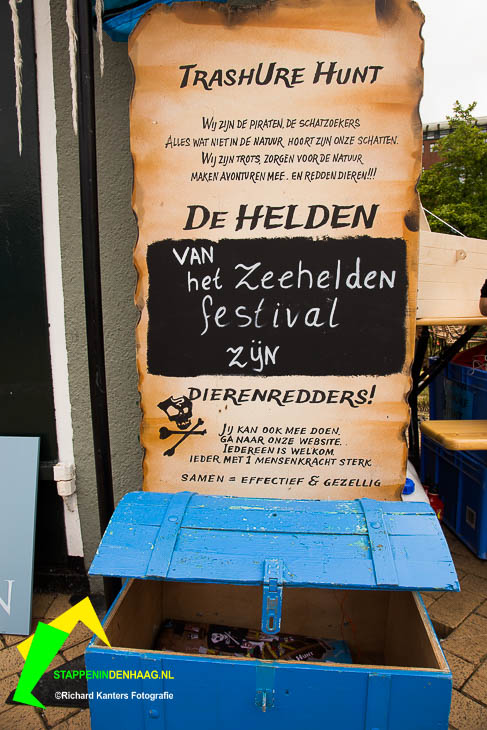 TrashUre Hunt
Wij zijn de piraten, de schatzoekers
Alles wat niet in de natuur hoort zijn onze schatten.
Wij zijn trots, zorgen voor de natuur
maken avonturen mee. en redden dieren!!!
De HELDEN
VAN
het Zeehelden
festival
zijn
DIERENREDDERS!
Jij kan ook mee doen.
Ga naar onze website..
Iedereen is welkom
ieder met 1 mensenkracht sterk.
Samen = effectief & gezellig
Hunt
N
STAPPENINDENHAAG.NL
©Richard Kanters Fotografie